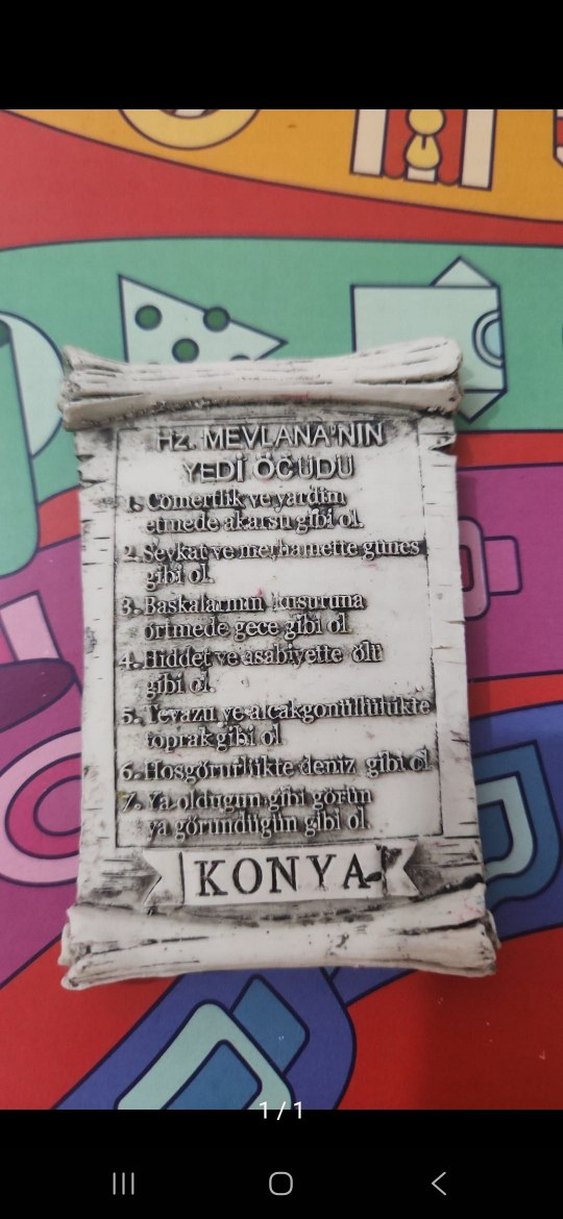 Hz. MEVLANA'NIN
YEDİ ÖĞÜDÜ
1. Comertlik ve yardim
etmede akarsu gibi ol.
2. Sevkat ve merhamette gunes
gibi ol.
3. Baskalarının kusuruna
ortmede gece gibi ol
4. Hiddet ve asabiyette ölü
gibi ol.
5. Tevazu ve alcakgonullulukte
toprak gibi ol
6. Hosgorurlukte deniz gibi ol
7. Ya oldugun gibi görün
ya göründügün gibi ol
KONYA
1 / 1